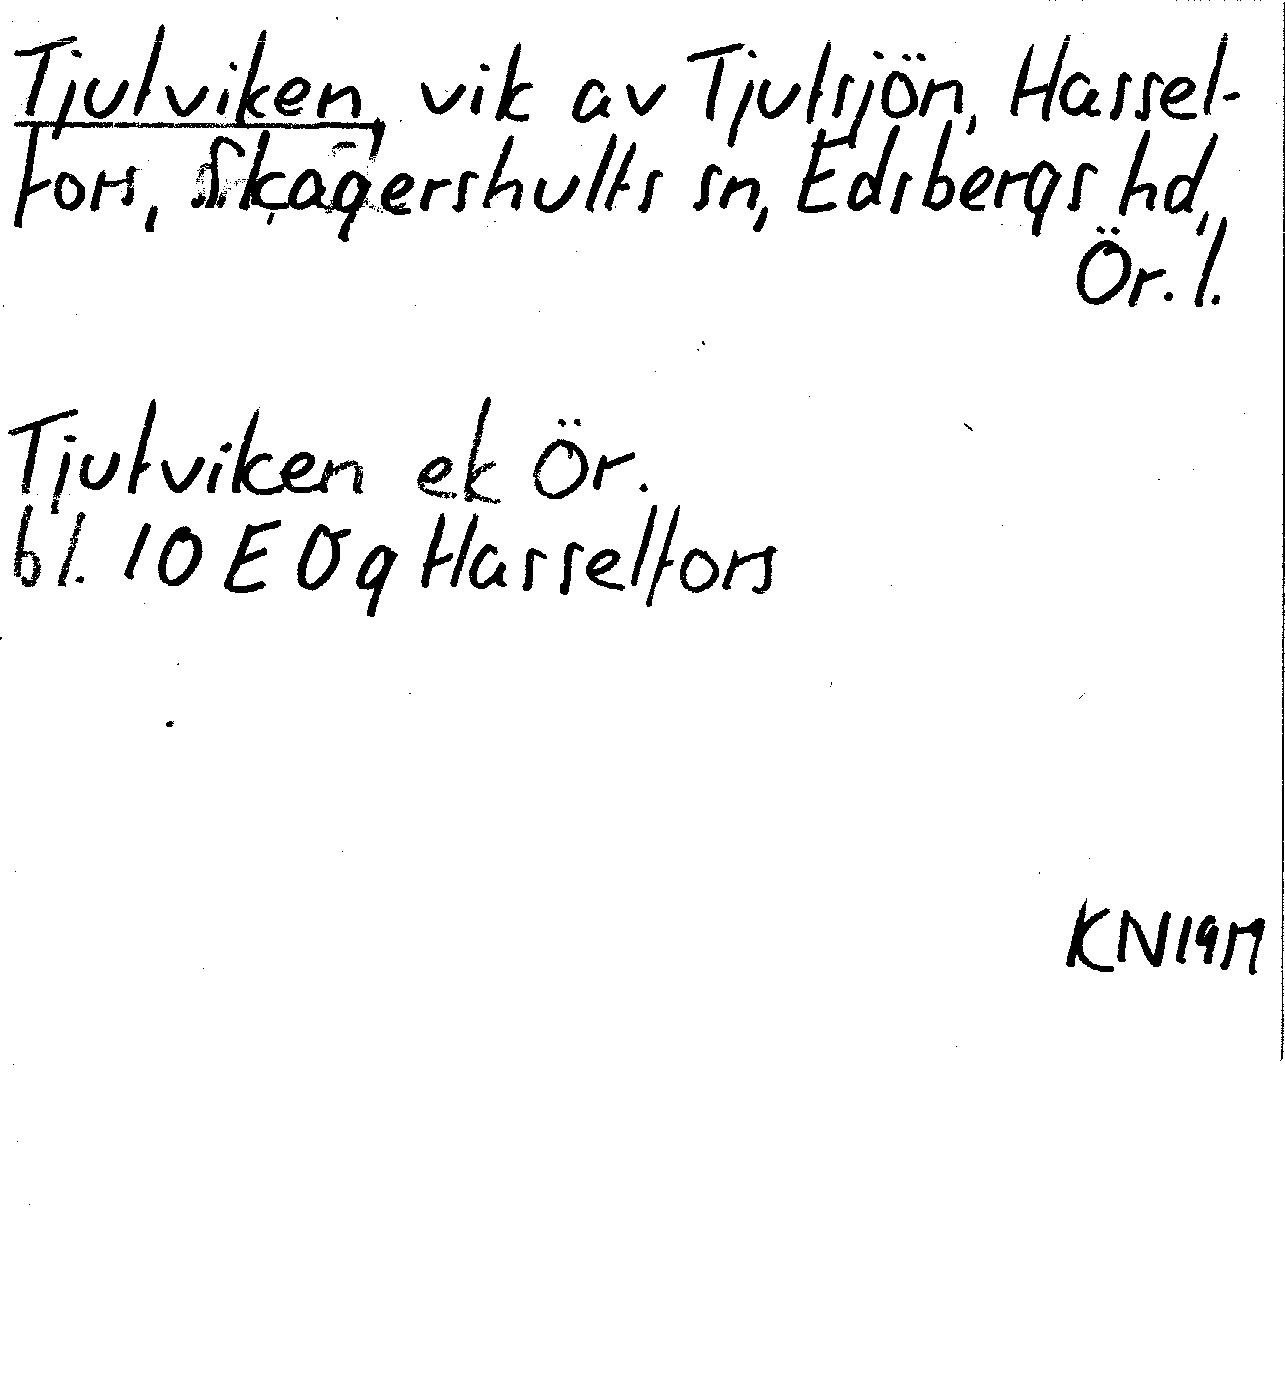 Tjutviken, vik av Tjutsjön, Hassel-
fors, Skagershults sn, Edsbergs hd,
Ör. l.
Tjutviken ek Ör.
bl. 10 E 0g Hasselfors
KN 1977